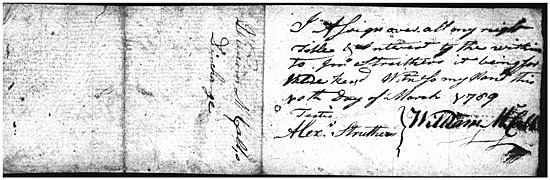 William McCall
Discharge
I Assign over all my right
Title & Interest of the within
to Jno. Struthers it being for
Value Recd Witness my Hand this
10th Day of March 1789
Teste
Alexr. Struthers
William McCall